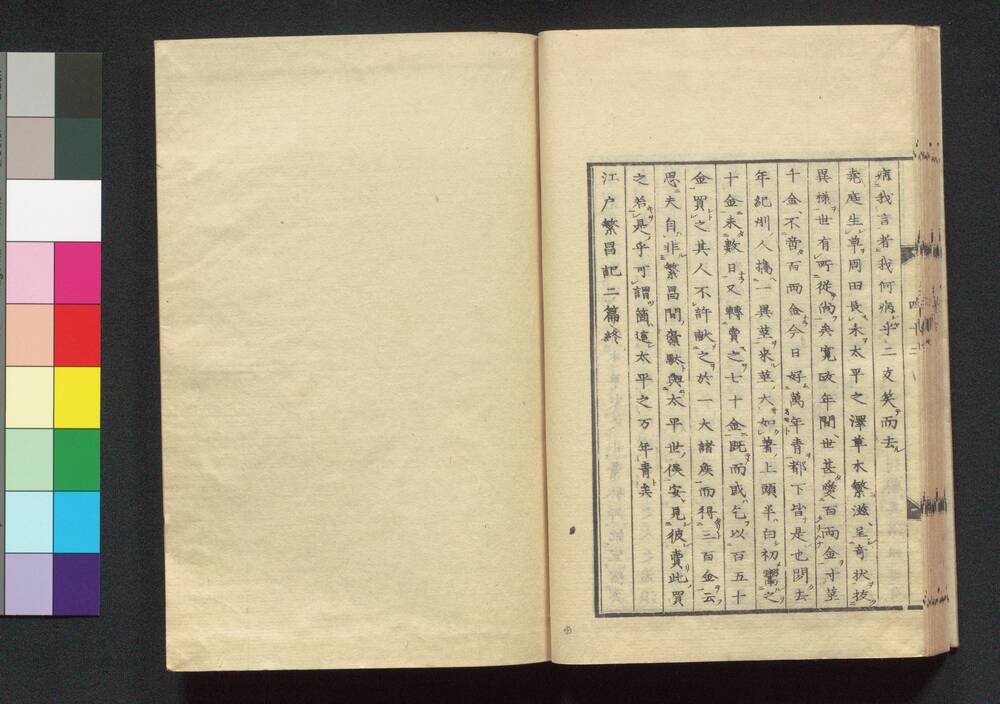 病我言者我何病乎二丈笑而去
堯庭生蓂周田長禾太平之澤草木繁滋呈奇状抜
異様世有所従尚矣寛政年間世甚愛百両金寸莖
千金不啻百両金今日好萬年青都下皆是也聞去
年紀州人携一異莖来葉大如箸上頭半白初鬻之
十金未數日又轉賣之七十金既而或乞以百五十
金買之其人不許献之於一大諸侯而得三百金云
思夫自非繁昌間麋麩與太平世侯安見彼賣此買
之若是乎可謂箇這太平之万年青矣
江戸繁昌記二篇終